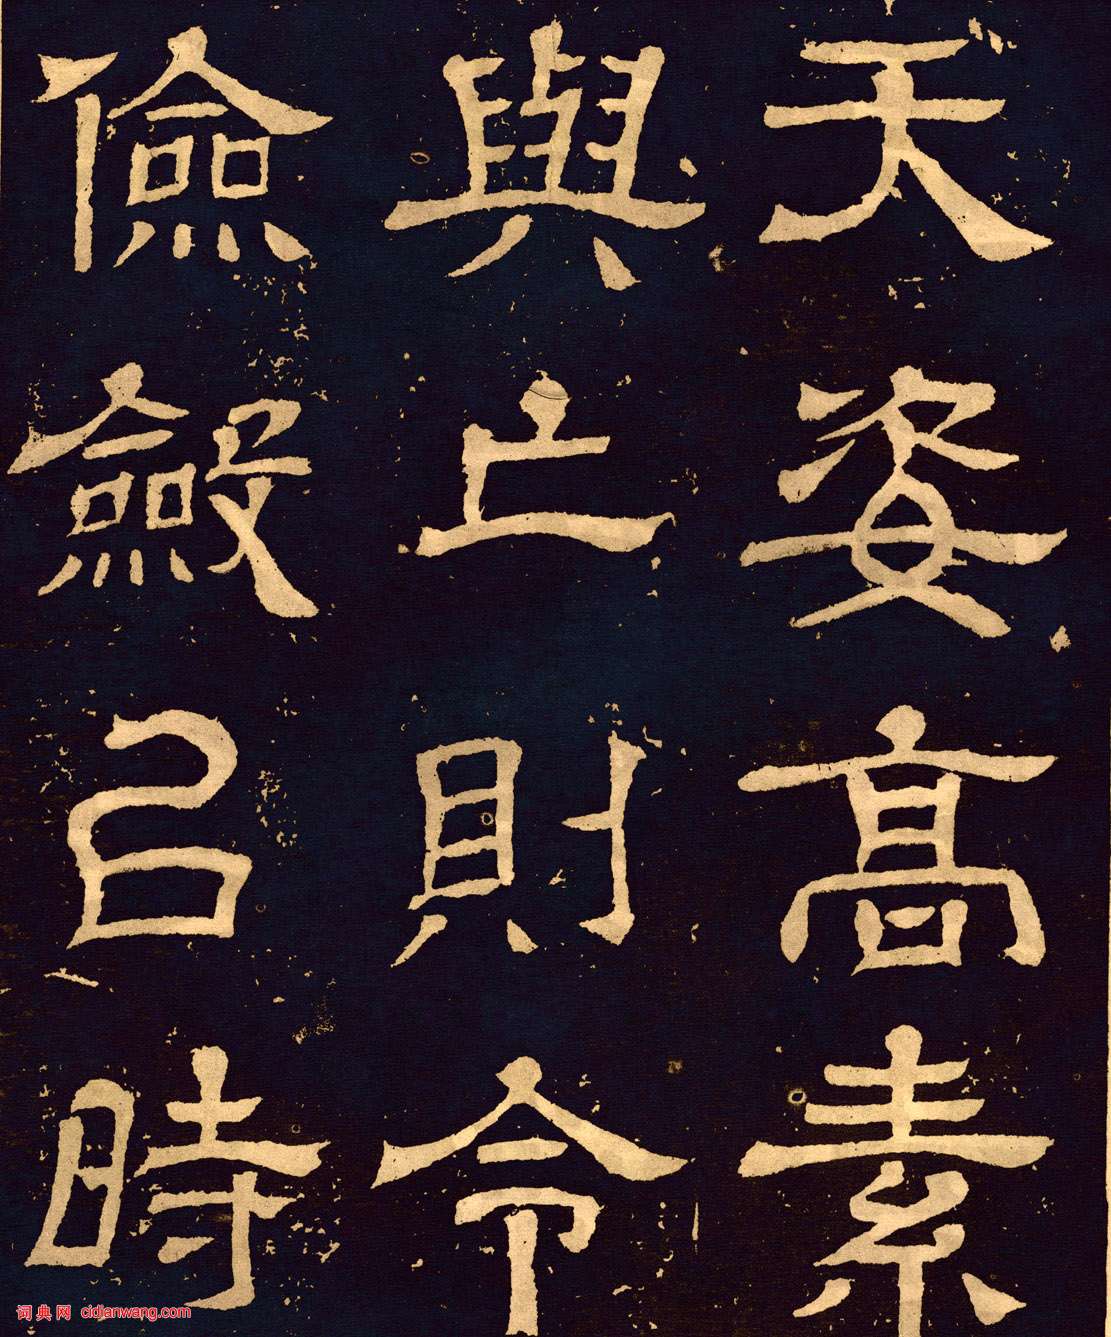 天姿高素
與亡則令
儉斂㠯時
词典网 cidianwang.com